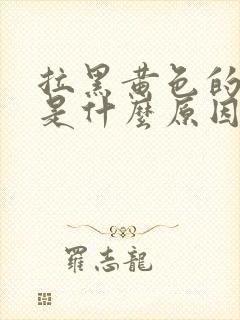 拉黑黄色的
是什麼原因
羅志龍